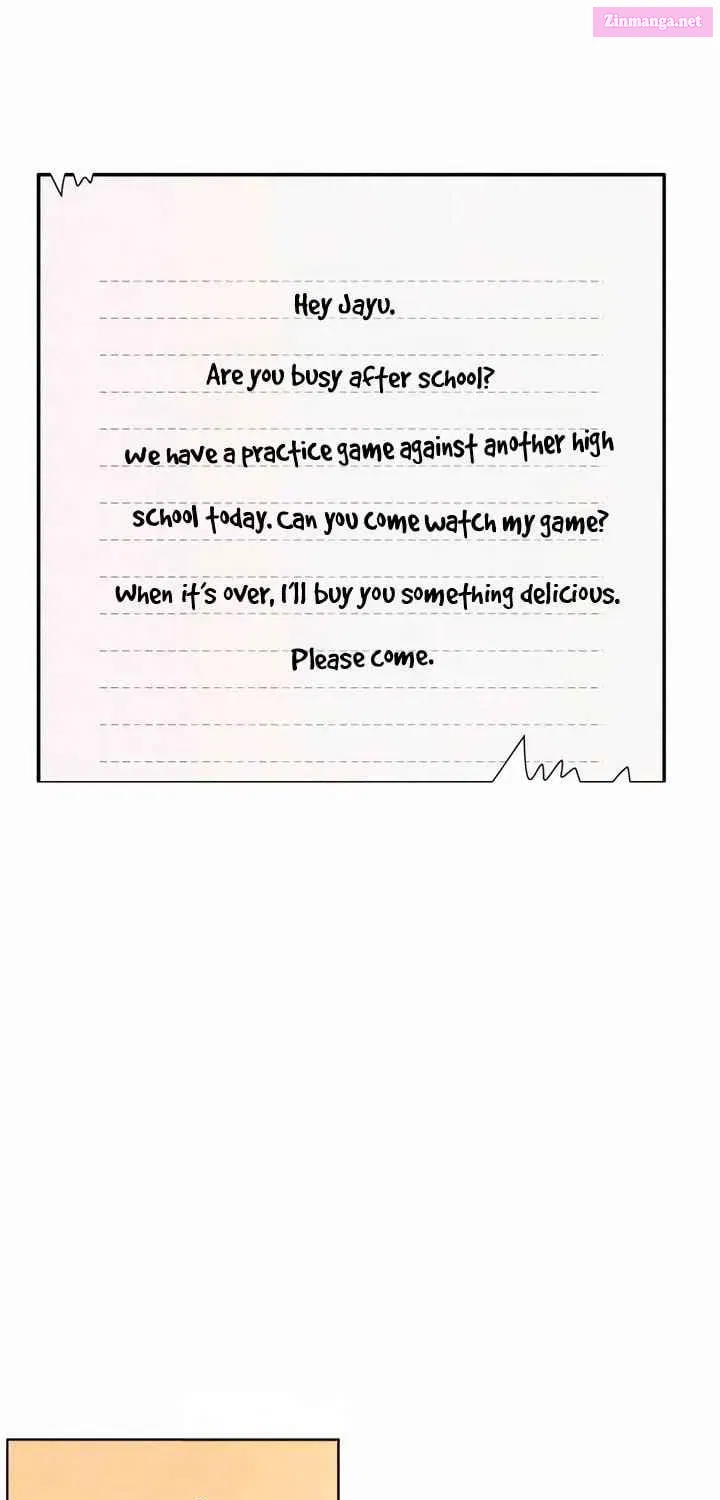 Zinmanga.net
Hey Jayu.
Are you busy after school?
We have a practice game against another high
school today. Can you come watch my game?
When it's over, I'll buy you something delicious.
Please come.